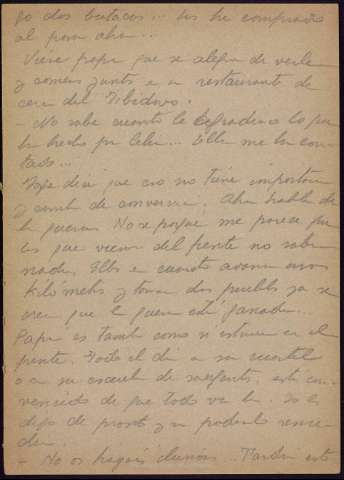 go dos butacas... Las he comprado
al pasar ahora...
Viene papa que se alegra de verle
y comen juntos en un restaurante de
cerca del Tibidavo.
- No sabe cuanto le agradezco lo que
ha hecho por Celia... Ella me ha con-
tado...
Papa dice que eso no tiene importancia
y cambia de conversar. Ahora hablan de
la guerra. No se porque me parece que
los que vienen del frente no saben
nada. Ellos en cuanto avanzan unos
kilómetros y toman dos pueblos ya se
creen que la guerra está ganada...
Papa es tambien como si estuviera en el
frente. Todo el dia en su cuartel
o en su escuela de sargentos, está con-
vencido de que todo va bien. Los
dejo de pronto y sin poderlo reme-
diar.
- No os hagais ilusiones... Tardará este